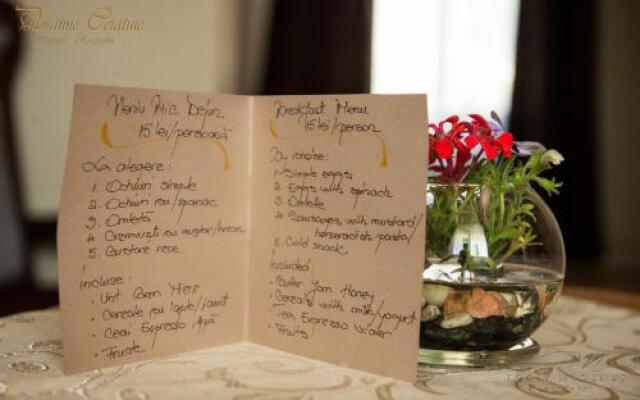 Cetatuie
Meniu Mic Dejun
15 lei/persoană
La alegere:
1. Ochiuri simple
2. Ochiuri cu spanac
3. Omletă
4. Cremvuști cu muștar/hrean
5. Gustare rece
Incluse:
• Unt Gem Miere
• Cereale cu lapte/iaurt
• Ceai Espresso Apă
• Fructe
Breakfast Menu
15 lei/person
By choise:
1. Simple eggs
2. Eggs with spinack
3. Omlete
4. Sausages with mustard/
horseradish pasta/
5. Cold snack
Included:
• Buter Jam Honey
• Cereals with milk/yogurt
• Tea Espresso Water
• Fruits